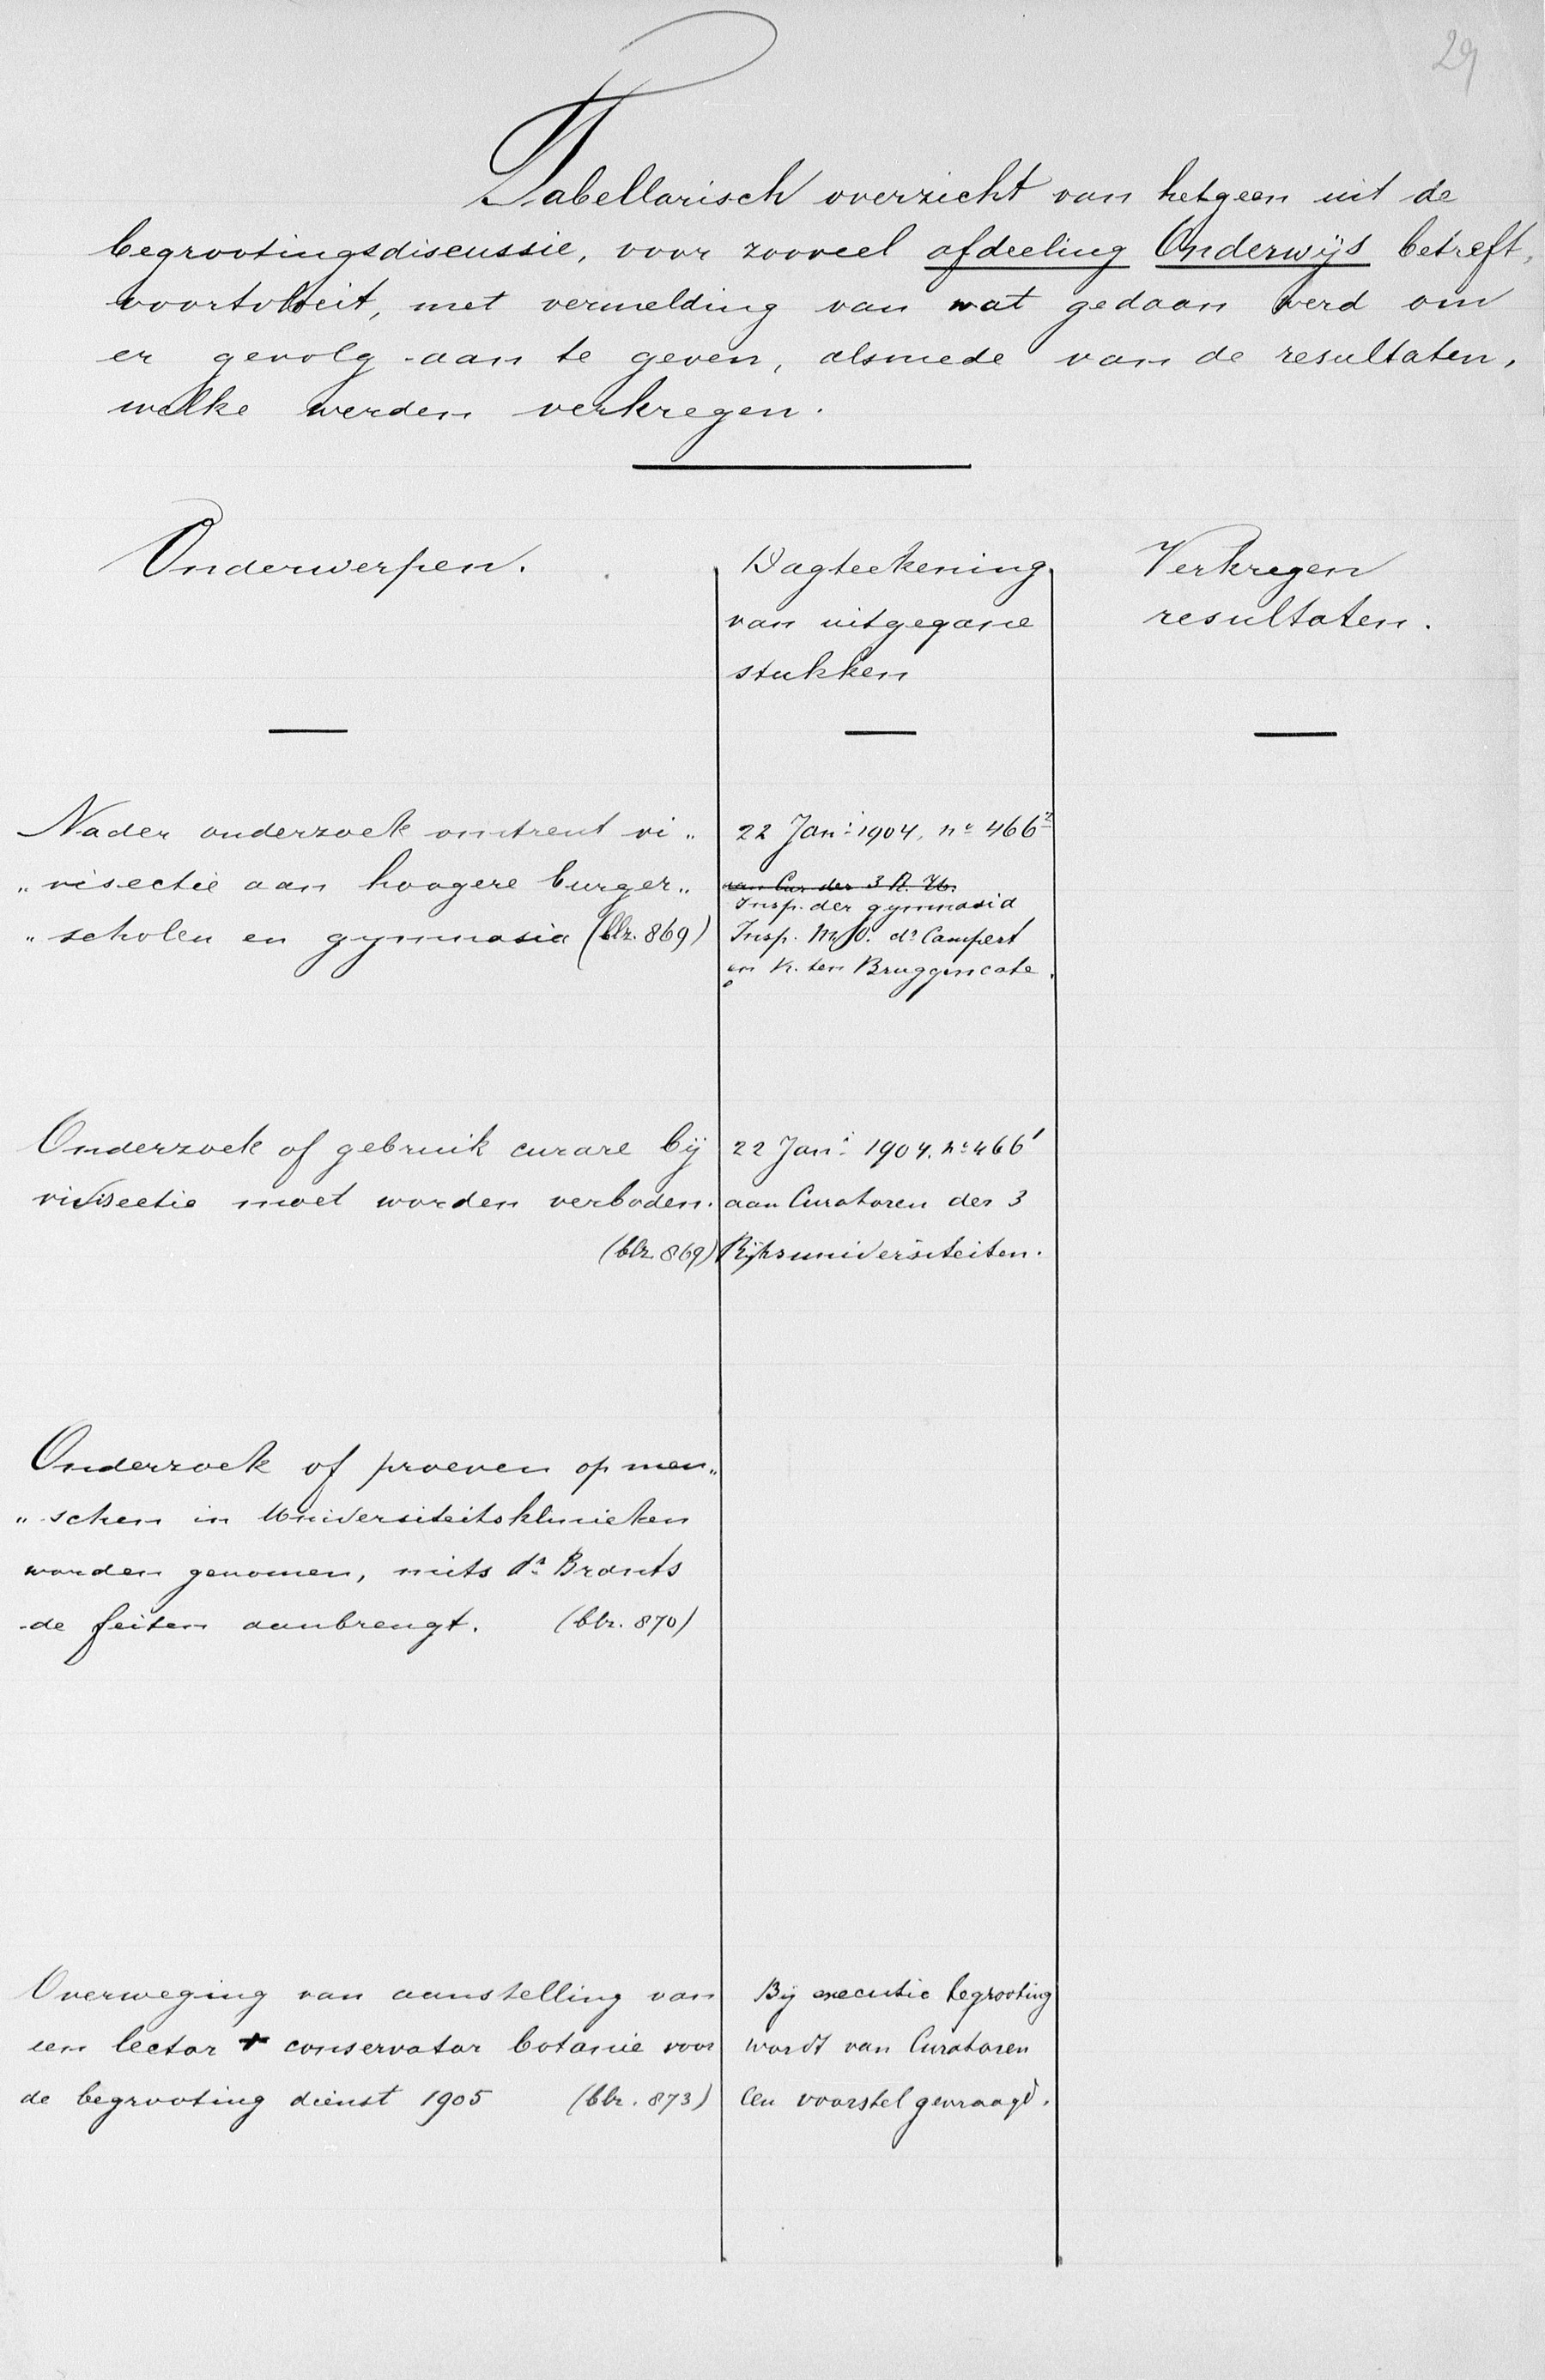 29
Tabellarisch overzicht van hetgeen uit de
begrootingsdiscussie, voor zooveel afdeeling Onderwijs betreft,
voortvloeit, met vermelding van wat gedaan werd om
er gevolg aan te geven, alsmede van de resultaten,
welke werden verkregen.
Onderwerpen.
Dagteekening
van uitgegane
stukken
Verkregen
resultaten.
Nader onderzoek omtrent vi„
„visectie aan hoogere burger„
„scholen en gymnasia (blz. 869)
22 Jani 1904, no 466²
aan Cur der 3 R. U.
Insp. der gymnasia
Insp. M.O. dr Campert
en K. ten Bruggencate.
Onderzoek of gebruik curare bij
vivisectie moet worden verboden.
(blz. 869)
22 Jani 1904. no 466¹
aan Curatoren der 3
Rijksuniversiteiten.
Onderzoek of proeven op men„
„schen in Universiteitsklinieken
worden genomen, mits dr Brants
de feiten aanbrengt. (blz. 870)
Overweging van aanstelling van
een lector + conservator botanie voor
de begrooting dienst 1905 (blz. 873)
Bij executie begrooting
wordt van Curatoren
een voorstel gevraagd.